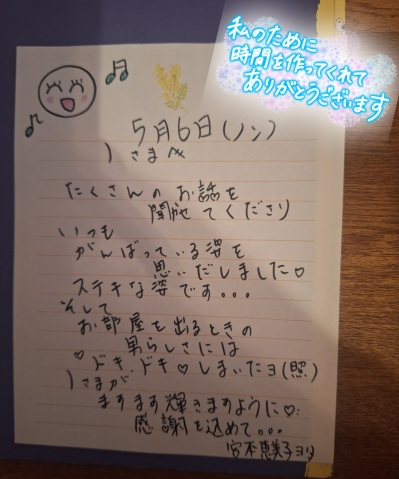 私のために
時間を作ってくれて
ありがとうございます
5月6日(ノン)
さまへ
たくさんのお話を
聞かせてくださり
いつも
がんばっている姿を
思いだしました♡
ステキな姿です。。。
そして
お部屋を出るときの
男らしさには
♡ドキ、ドキ♡しまいたヨ(照)
さまが
ますます輝きますように♡
感謝を込めて。。。
宮本恵美子ヨリ